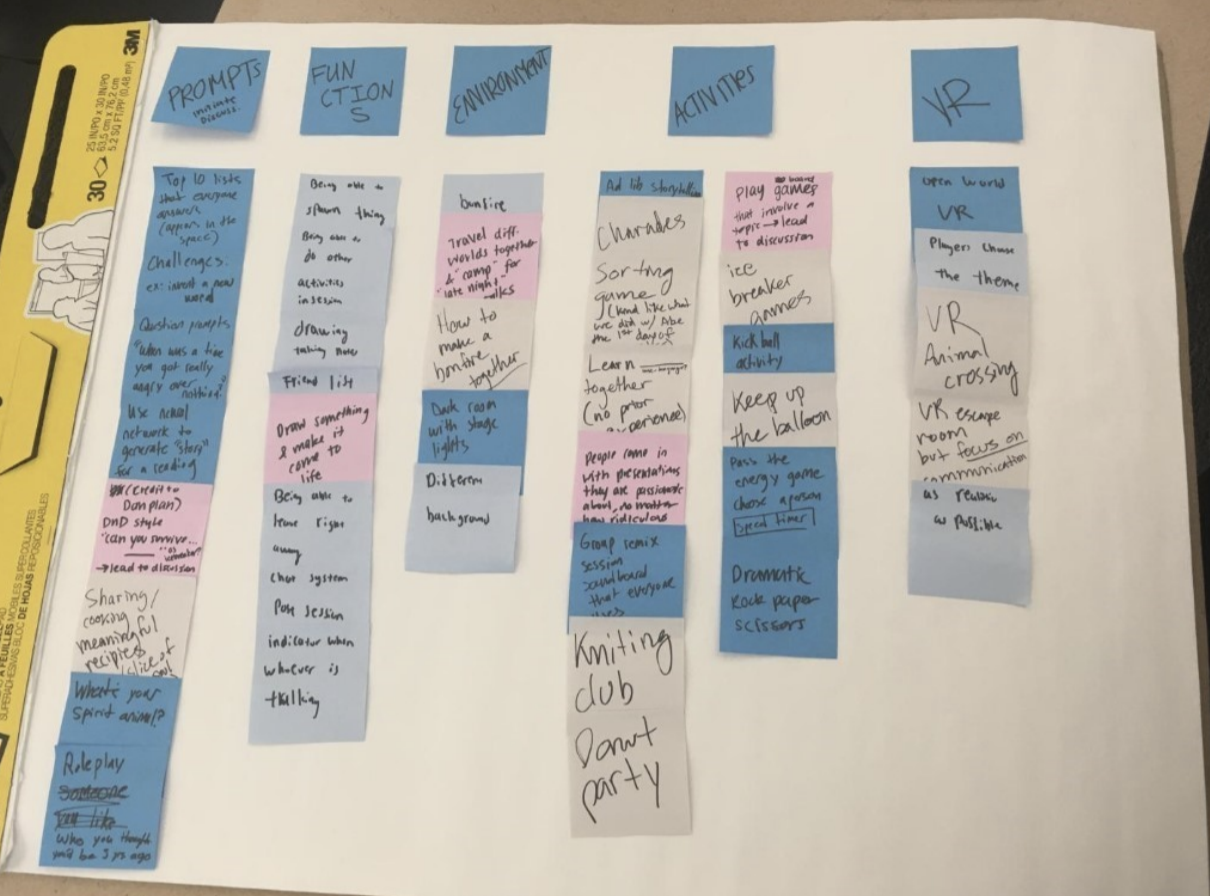 3M
25 IN/PO X 30 IN/PO
63,5 cm x 76,2 cm
5.2 SQ FT/PP (0,48 m²)
30
PROMPTS
initiate
Discuss.
Top 10 lists
that everyone
answers
(appears in the
space)
Challenges:
ex: invent a new
word
Question prompts
"When was a time
you got really
angry over
nothing?"
Use neural
network to
generate "story"
for a reading
(Credit to
Danplan)
DND style
"can you survive...
→ lead to discussion
Sharing/
cooking
meaningful
recipies
(slice of
What's your
spirit animal?
Roleplay
someone
you like
who you thought
you'd be 3 yrs ago
FUN
CTION
S
Being able to
spawn thing
Being able to
do other
activities
in session
drawing
taking notes
Friend list
Draw something
& make it
come to
life
Being able to
leave right
away
chat system
Post session
indicator when
whoever is
thalking
ENVIRONMENT
bonfire
Travel diff.
worlds together
& "camp" for
"late night"
talks
How to
make a
bonfire
together
Dark room
with stage
lights
Different
background
ACTIVITIES
Ad lib storytelling
Charades
Sorting
game
(kind like what
we did w/ Abe
the 1st day of
Learn
together
(no prior
experience)
People come in
with presentations
they are passionate
about, no matter
how ridiculous
Group remix
session
soundboard
that everyone
uses
Kniting
club
Donut
party
board
Play games
that involve a
topic → lead
to discussion
ice
breaker
games
Kickball
activity
Keep up
the balloon
Pass the
energy game
chose a person
speed timer
Dramatic
Rock paper
scissors
VR
open world
VR
Players choose
the theme
VR
Animal
crossing
VR escape
room
but focus on
communication
as realistic
as possible